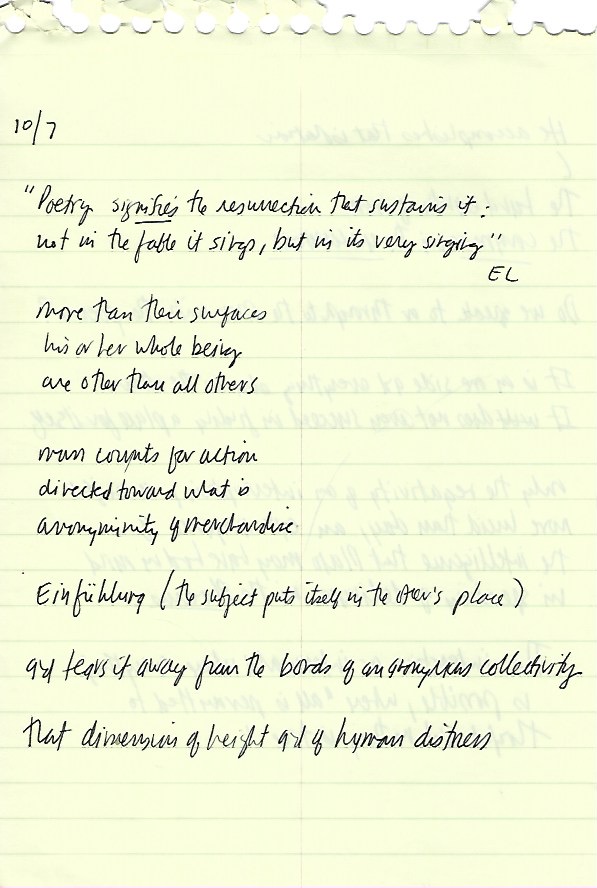 10/7
"Poetry signifies the resurrection that sustains it:
not in the fable it sings, but in its very singing"
EL
more than their surfaces
his or her whole being
are other than all others
man counts for action
directed toward what is
anonyminity of merchandise
Einfühlung (the subject puts itself in the other's place)
and tears it away from the bonds of an anonymous collectivity
that dimension of height and of human distress